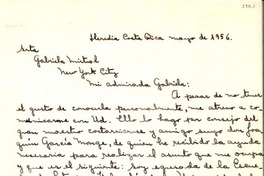 Heredia Costa Rica mayo de 1956.
Srta
Gabriela Mistral
New York City
Mi admirada Gabriela:
A pesar de no tener
el gusto de conocerla personalmente, me atrevo a co-
municarme con Ud. Ello lo hago por consejo del
gran maestro costarricense y amigo suyo don Joa-
quín García Monge, de quien he recibido la ayuda
necesaria para realizar el asunto que me ocupa
y que es el siguiente: Soy egresada de la Escue-